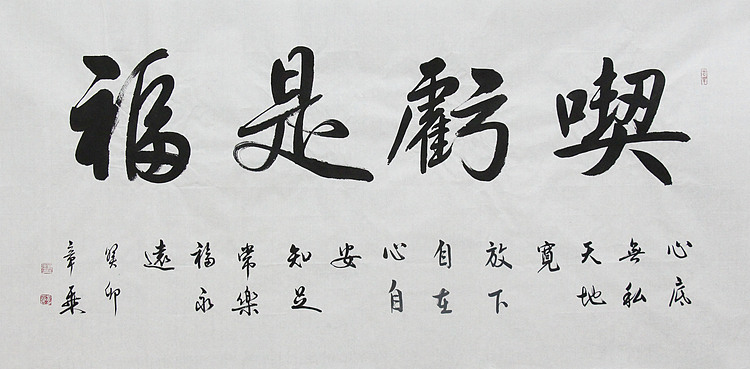 喫虧是福
心底
無私
天地
寬
放下
自在
心自
安
知足
常樂
福永
遠
癸卯
章